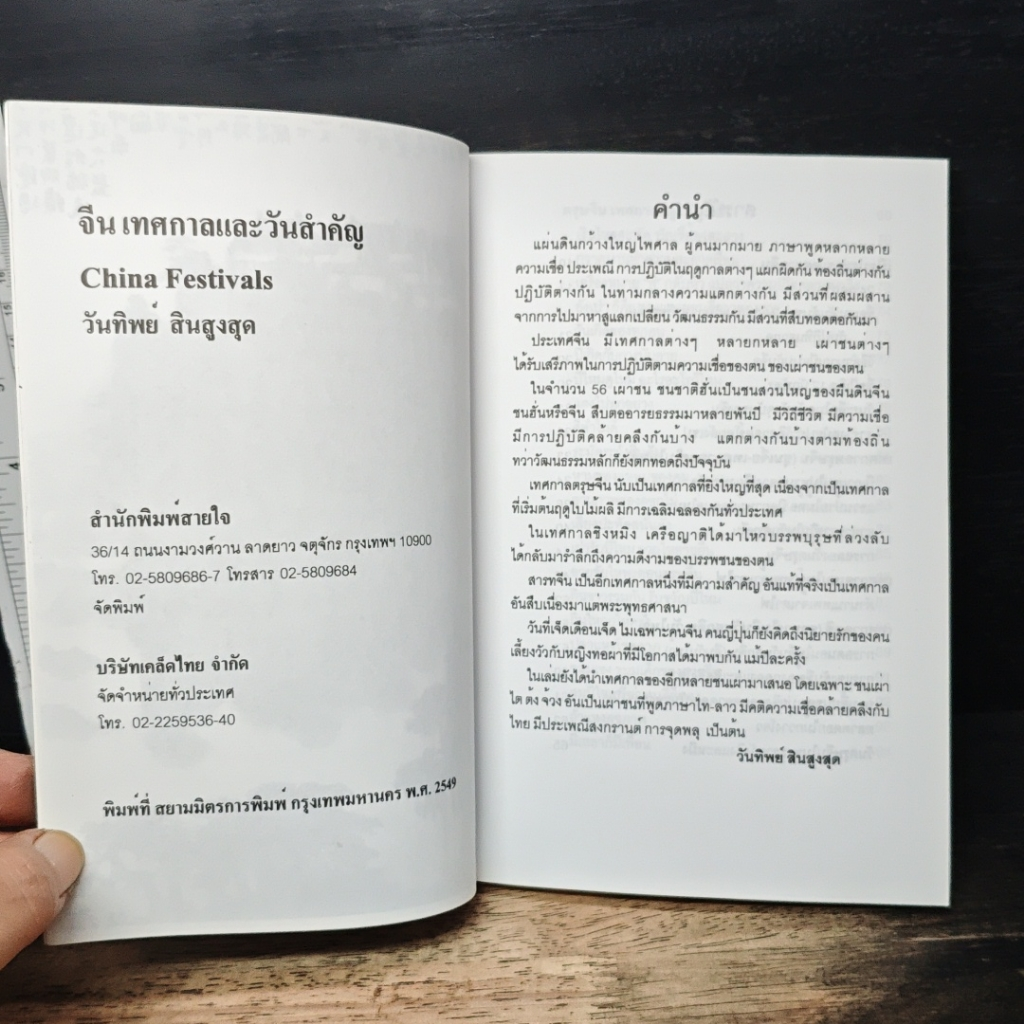 จีน เทศกาลและวันสำคัญ
China Festivals
วันทิพย์ สินสูงสุด
สำนักพิมพ์สายใจ
36/14 ถนนงามวงศ์วาน ลาดยาว จตุจักร กรุงเทพฯ 10900
โทร. 02-5809686-7 โทรสาร 02-5809684
จัดพิมพ์
บริษัทเคล็ดไทย จำกัด
จัดจำหน่ายทั่วประเทศ
โทร. 02-2259536-40
พิมพ์ที่ สยามมิตรการพิมพ์ กรุงเทพมหานคร พ.ศ. 2549
คำนำ
แผ่นดินกว้างใหญ่ไพศาล ผู้คนมากมาย ภาษาพูดหลากหลาย
ความเชื่อ ประเพณี การปฏิบัติในฤดูกาลต่างๆ แผกผิดกัน ท้องถิ่นต่างกัน
ปฏิบัติต่างกัน ในท่ามกลางความแตกต่างกัน มีส่วนที่ผสมผสาน
จากการไปมาหาสู่แลกเปลี่ยน วัฒนธรรมกัน มีส่วนที่สืบทอดต่อกันมา
ประเทศจีน มีเทศกาลต่างๆ หลายกหลาย เผ่าชนต่างๆ
ได้รับเสรีภาพในการปฏิบัติตามความเชื่อของตน ของเผ่าชนของตน
ในจำนวน 56 เผ่าชน ชนชาติฮั่นเป็นชนส่วนใหญ่ของผืนดินจีน
ชนฮั่นหรือจีน สืบต่ออารยธรรมมาหลายพันปี มีวิถีชีวิต มีความเชื่อ
มีการปฏิบัติคล้ายคลึงกันบ้าง แตกต่างกันบ้างตามท้องถิ่น
ทว่าวัฒนธรรมหลักก็ยังตกทอดถึงปัจจุบัน
เทศกาลตรุษจีน นับเป็นเทศกาลที่ยิ่งใหญ่ที่สุด เนื่องจากเป็นเทศกาล
ที่เริ่มต้นฤดูใบไม้ผลิ มีการเฉลิมฉลองกันทั่วประเทศ
ในเทศกาลชิงหมิง เครือญาติได้มาไหว้บรรพบุรุษที่ล่วงลับ
ได้กลับมารำลึกถึงความดีงามของบรรพชนของตน
สารทจีน เป็นอีกเทศกาลหนึ่งที่มีความสำคัญ อันแท้ที่จริงเป็นเทศกาล
อันสืบเนื่องมาแต่พระพุทธศาสนา
วันที่เจ็ดเดือนเจ็ด ไม่เฉพาะคนจีน คนญี่ปุ่นก็ยังคิดถึงนิยายรักของคน
เลี้ยงวัวกับหญิงทอผ้าที่มีโอกาสได้มาพบกัน แม้ปีละครั้ง
ในเล่มยังได้นำเทศกาลของอีกหลายชนเผ่ามาเสนอ โดยเฉพาะ ชนเผ่า
ไต ต้ง จ้วง อันเป็นเผ่าชนที่พูดภาษาไท-ลาว มีคติความเชื่อคล้ายคลึงกับ
ไทย มีประเพณีสงกรานต์ การจุดพลุ เป็นต้น
วันทิพย์ สินสูงสุด